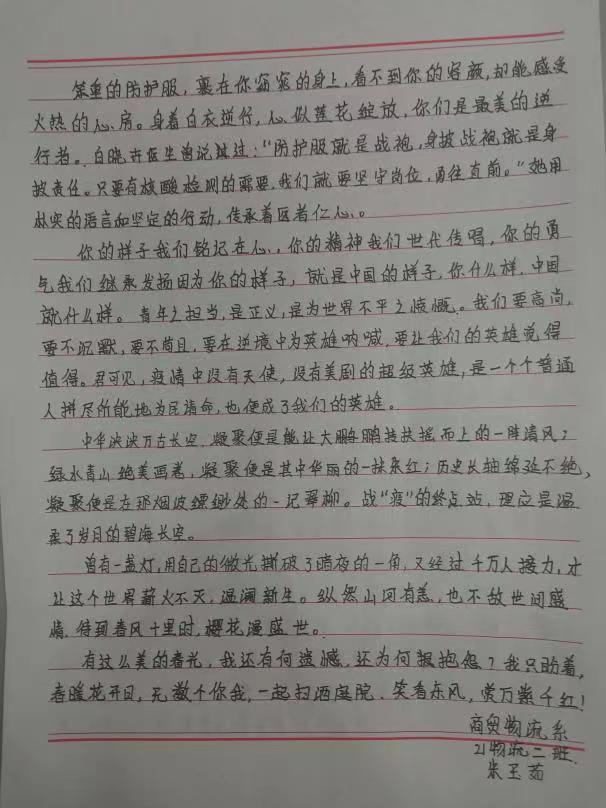 笨重的防护服，裹在你窈窕的身上，看不到你的容颜，却能感受
火热的心房。身着白衣逆行，心似莲花绽放，你们是最美的逆
行者。白晓卉医生曾说过：“防护服就是战袍，身披战袍就是身
披责任。只要有核酸检测的需要，我们就要坚守岗位，勇往直前。”她用
朴实的语言和坚定的行动，传承着医者仁心。
你的样子我们铭记在心，你的精神我们世代传唱，你的勇
气我们继承发扬因为你的样子，就是中国的样子，你什么样，中国
就什么样。青年之担当，是正义，是为世界不平之愤慨。我们要高尚，
要不沉默，要不苟且，要在逆境中为英雄呐喊，要让我们的英雄觉得
值得。君可见，疫情中没有天使，没有美剧的超级英雄，是一个个普通
人拼尽所能地为民请命，也便成了我们的英雄。
中华泱泱万古长空，凝聚便是能让大鹏鹏抟扶摇而上的一阵清风；
绿水青山绝美画卷，凝聚便是其中华丽的一抹朱红；历史长轴绵延不绝，
凝聚便是在那烟波缥缈处的一记翠柳。战“疫”的终点站，理应是温
柔了岁月的碧海长空。
曾有一盏灯，用自己的微光撕破了暗夜的一角，又经过千万人接力，才
让这个世界薪火不灭，温澜新生。纵然山河有恙，也不敌世间盛
情，待到春风十里时，樱花漫盛世。
有这么美的春光，我还有何遗憾，还为何报抱怨？我只盼着，
春暖花开日，无数个你我，一起扫洒庭院，笑看东风，赏万紫千红！
商贸物流系
21物流二班
朱玉茹